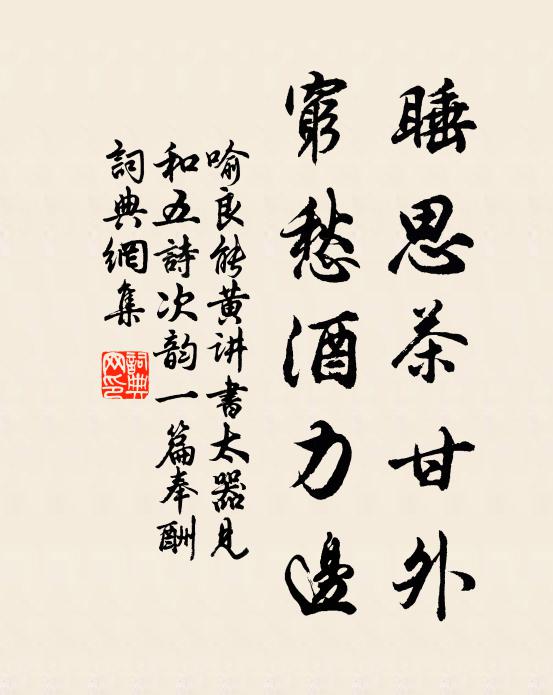 睡思茶甘外
窮愁酒力邊
喻良能黄讲書太器見
和五詩次韵一篇奉酬
詞典網集
詞典网印